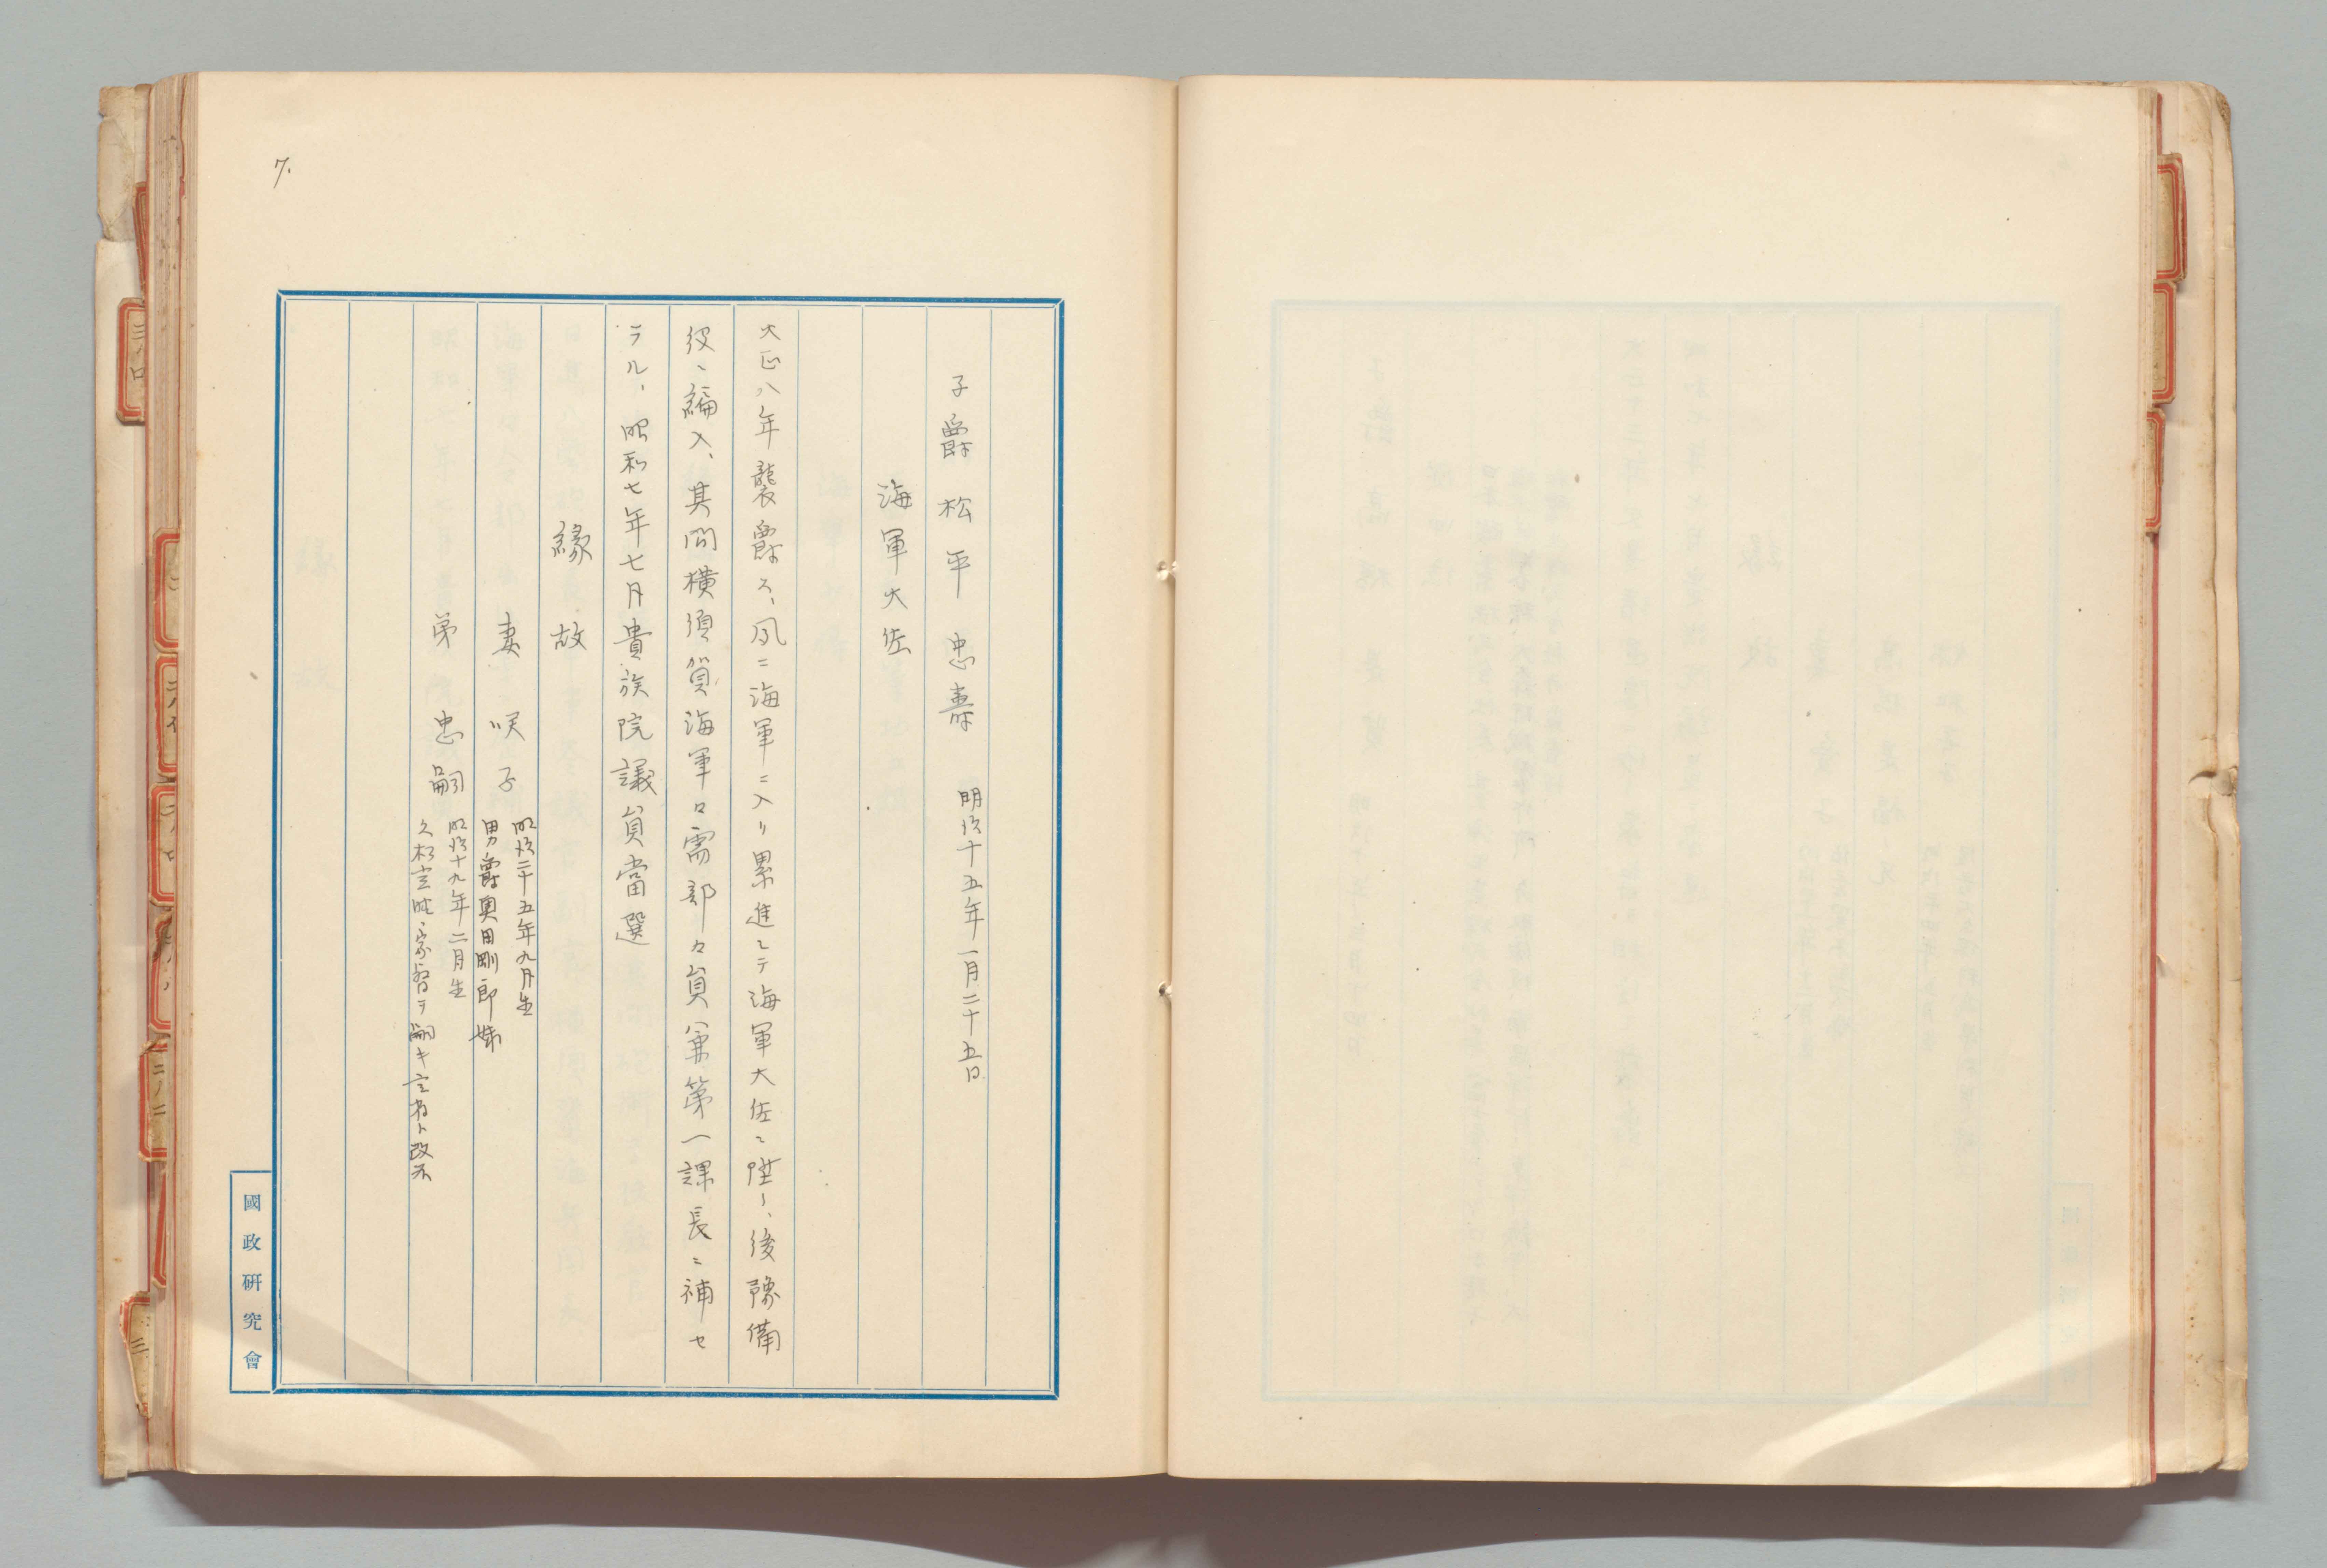 7.
子爵 松平忠壽 明治十五年一月二十五日
海軍大佐
大正八年襲爵ス、夙ニ海軍ニ入リ累進シテ海軍大佐ニ陞リ、後豫備
役ニ編入、其間横須賀海軍々需部々員兼第一課長ニ補セ
ラル、昭和七年七月貴族院議員當選
縁故
妻 咲子 明治二十五年九月生
男爵奥田剛郎姉
弟 忠嗣 明治十九年二月生
久松 家督ヲ嗣キ ト改ム
國政研究會